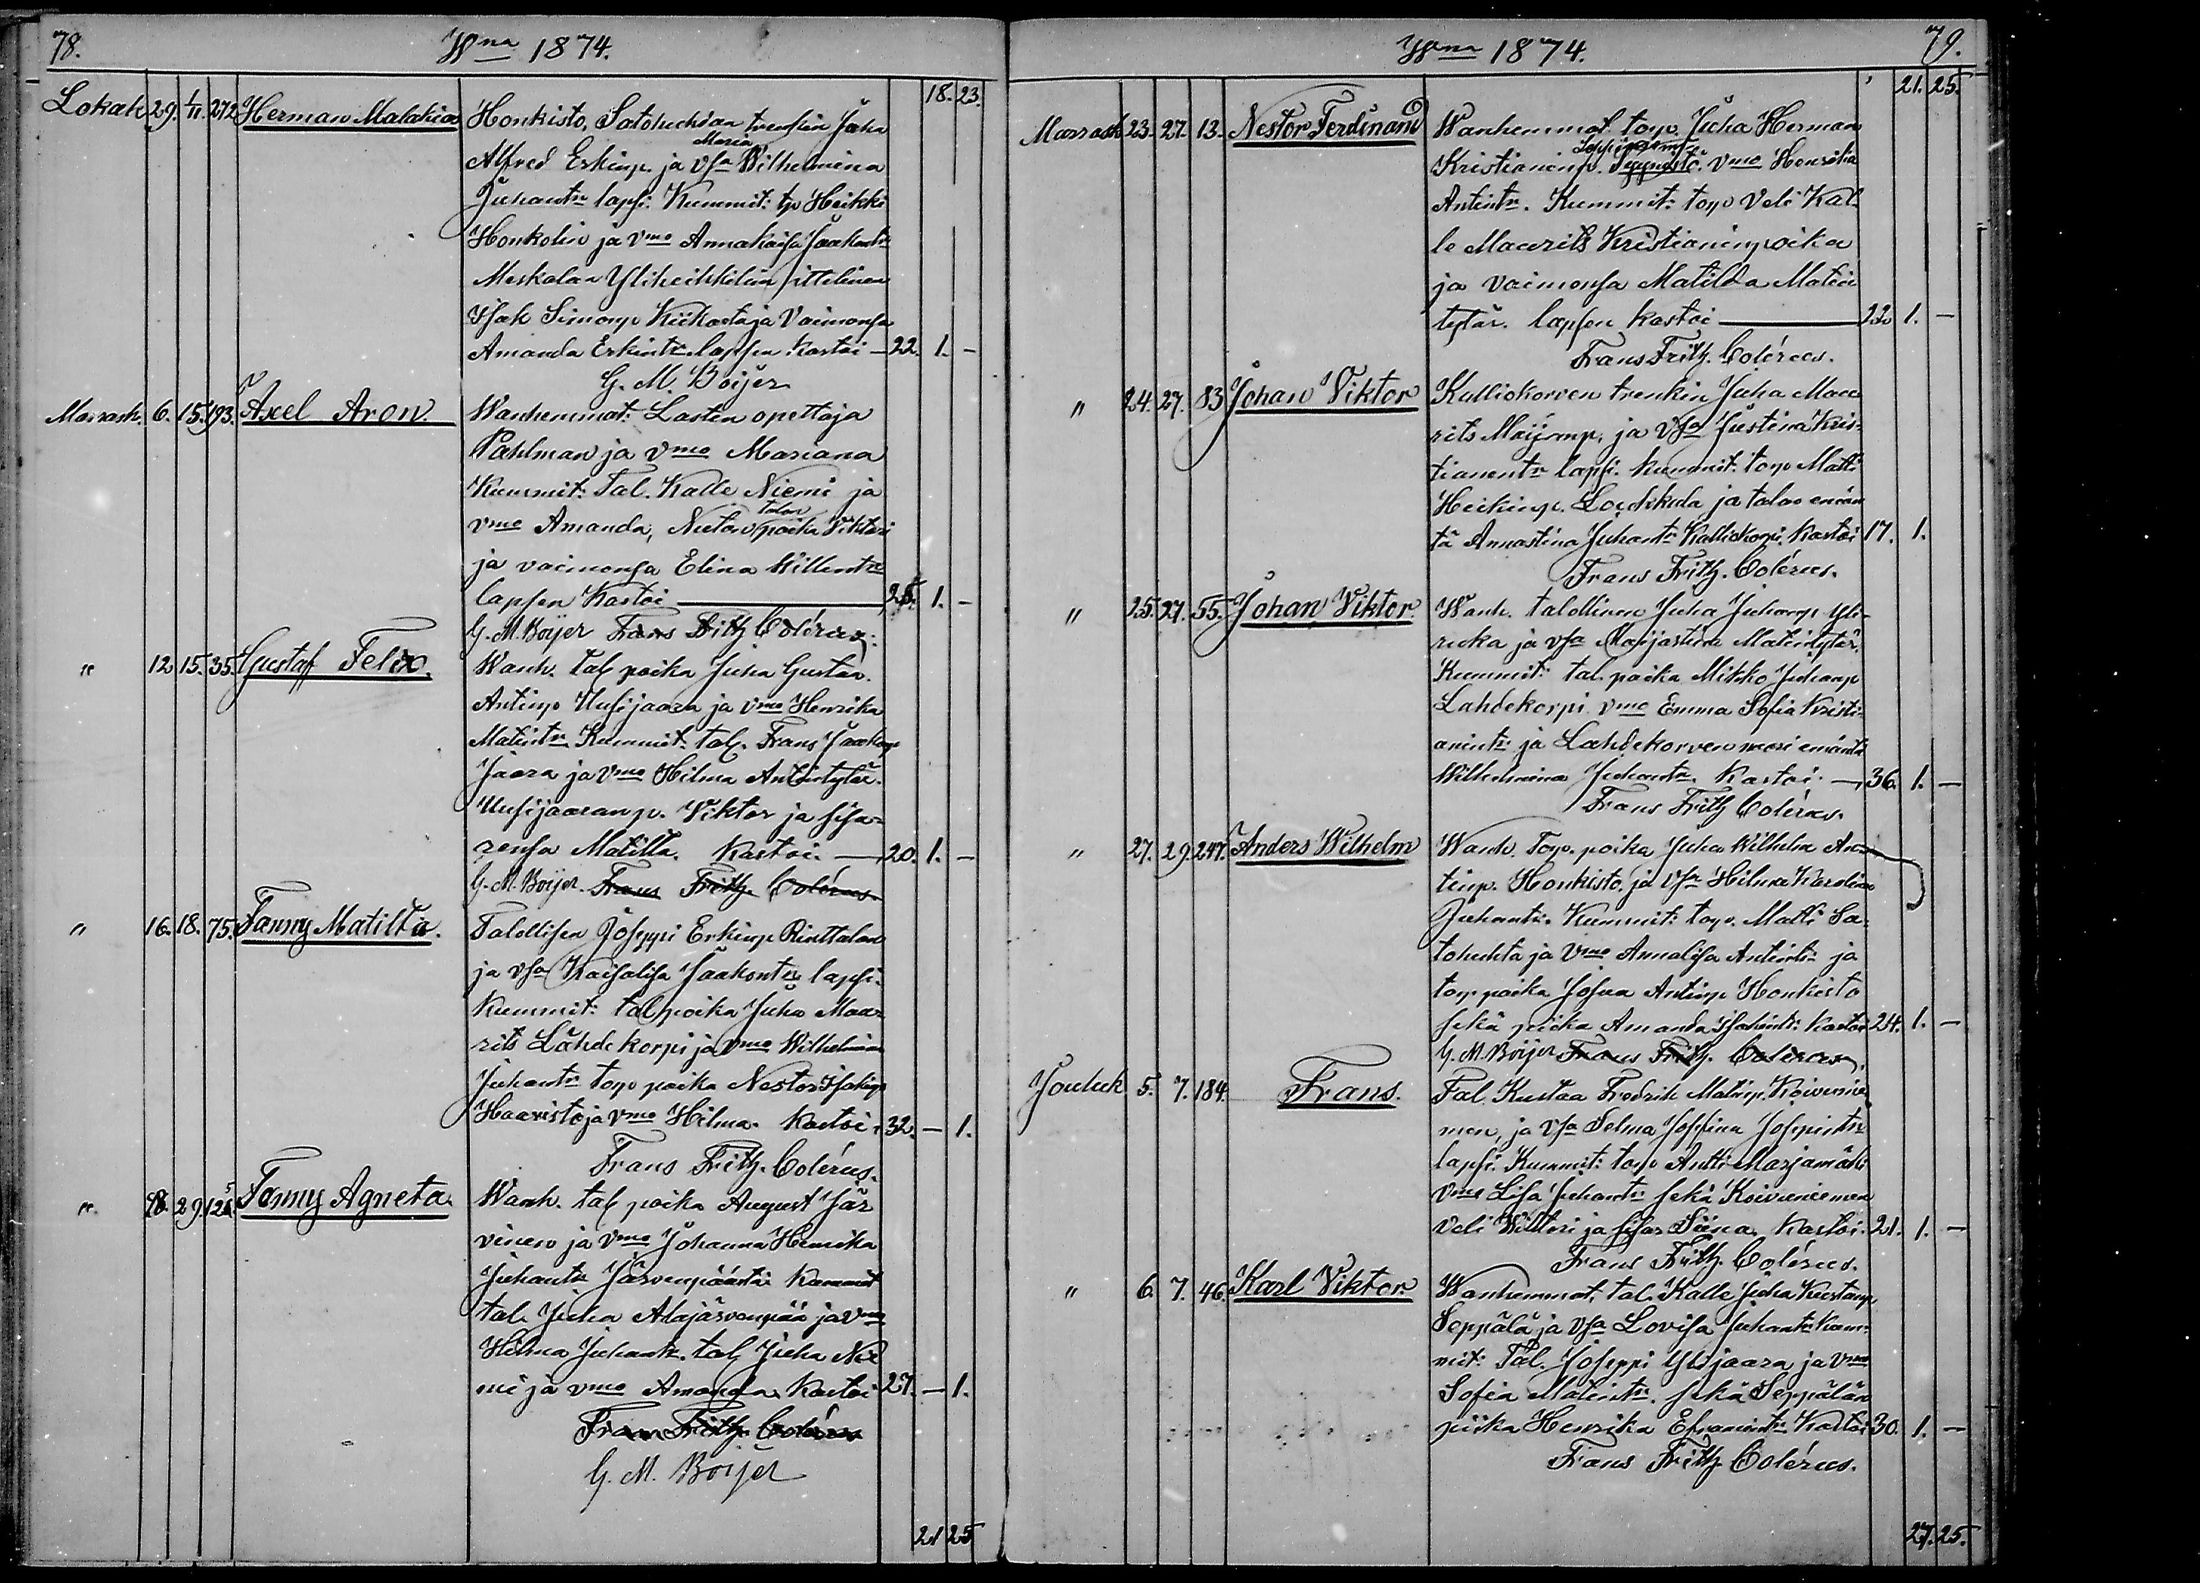 78.
Wna 1874.
18. 23.
Lokak 29. 1/11 272 Herman Malakias Honkisto, Satohuhdan trenkin Juha
Maria
Alfred Erkinp. ja vsa Wilhelmina
Juhantr lapsi. Kummit: tp Heikki
Honkolin ja vmo Annakaisa Jaakontr
Meskalan Yliheikkilän ittelinen
Isak Simonp Kiikasta ja Vaimonsa
Amanda Erkintr. lapsen kastoi — 22. 1. —
G. M. Boijer
Marrask. 6. 15. 193. Axel Aron. Wanhemmat: Lasten opettaja
Pahlman ja vmo Mariana
Kummit: Tal. Kalle Niemi ja
talon
vmo Amanda, poika Viktori
ja vaimonsa Elina Willentr
lapsen Kastoi — 25. 1. —
G. M. Boijer Frans Fritz Colérus.
" 12. 15. 35. Gustaf Felix. Wanh. tal. poika Juha Gustaa.
Antinp Uusijaara ja vmo Henrika
Matintr. Kummit: tal. Frans Jaakonp
Jaara ja vmo Hilma Antintytär.
Uusijaaranp. Viktor ja sisa-
rensa Matilda. Kastoi. — 20. 1. —
G. M. Boijer. Frans Fritz. Colérus.
" 16. 18. 75. Fanny Matilda. Talollisen Joseppi Erkinp Rinttalan
ja vsa Kaisalisa Jaakontr lapsi.
Kummit: tal poika Juha Mau-
rits Lähdekorpi ja vmo Wilhelmina
Juhantr torp poika Nestor Isakinp
Haavisto ja vmo Hilma. Kastoi. 32. — 1.
Frans Fritz. Colérus.
" 18. 29. 125. Fanny Agneta. Wanh. tal. poika August Jär
vinen ja vmo Johanna Henrika
Juhantr Järvenpäästä Kummit
tal. Juha Alajärvenpää ja vmo
Hilma Juhantr. tal. Juha Nie
mi ja vmo Amanda. Kastoi 27. — 1.
Frans Fritz. Colérus
G. M. Boijer
21 25
Wna 1874.
79.
21. 25.
Marrask 23. 27. 13. Nestor Ferdinand Wanhemmat torp. Juha Herman
Kristianinp. vmo Henrika
Antintr. Kummit: torp Veli Kal-
le Maurits Kristianinpoika
ja vaimonsa Matilda Matin
tytär. lapsen kastoi — 22. 1. —
Frans Fritz. Colérus.
" 24. 27. 83 Johan Viktor Kalliokorven trenkin Juha Mau
rits Maijanp. ja vsa Justina Kris-
tianintr lapsi. kummit: torp Matti
Heikinp. ja talon emän
tä Annastina Juhantr Kalliokorpi. Kastoi 17. 1.
Frans Fritz. Colérus.
" 25. 27. 55. Johan Viktor Wanh. talollinen Juha Juhanp Yli-
ruka ja vsa Marjastina Matintytär.
Kummit: tal. poika Mikko Juhanp
Lahdekorpi vmo Emma Sofia Kristi-
anintr ja Lähdekorven nuori emäntä
Wilhelmina Juhantr. Kastoi. — 36. 1. —
Frans Fritz Colérus.
" 27. 29. 247. Anders Wilhelm Wanh. Torp. poika Juha Wilhelm An-
tinp. Honkisto. ja vsa Hilma Karolina
Juhantr. Kummit: torp. Matti Sa-
tohuhta ja vmo Annalisa Antintr ja
torp poika Josua Antinp Honkisto
sekä piika Amanda Isakintr. Kastoi 24. 1. —
G. M. Boijer Frans Fritz. Colérus.
Jouluk 5. 7. 184. Frans. Tal. Kustaa Fredrik Matinp. Koivunie-
men, ja vsa Selma Josefina Josepintr
lapsi. Kummit: torp Antti Marjamäki
vmo Lisa Juhantr sekä Koivuniemen
Veli Wihtori ja sisar Siina. Kastoi. 21. 1. —
Frans Fritz. Colérus.
" 6. 7. 46. Karl Viktor. Wanhemmat, tal. Kalle Juha Kustanp
Seppälä ja vsa Lovisa Juhantr Kum-
mit: Tal. Joseppi Ylijaara ja vmo
Sofia Matintr. sekä Seppälän
piika Henrika Efraimintr Kastoi 30. 1. —
Frans Fritz Colérus.
27. 25.